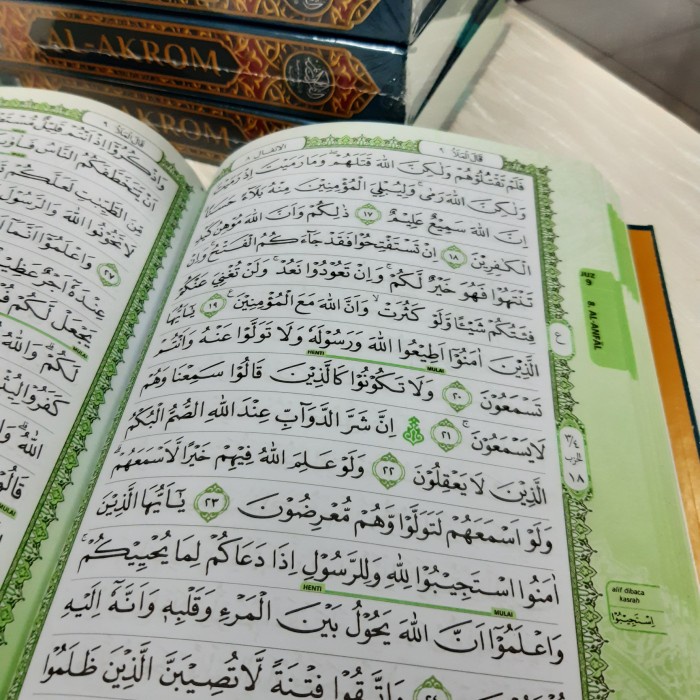 AL-AKROM
AL-AKROM
قَالَ الْمَلَأُ ٩
الْاَنْفَال ٨
فَلَمْ تَقْتُلُوْهُمْ وَلٰكِنَّ اللّٰهَ قَتَلَهُمْۖ وَمَا رَمَيْتَ اِذْ رَمَيْتَ
وَلٰكِنَّ اللّٰهَ رَمٰىۚ وَلِيُبْلِيَ الْمُؤْمِنِيْنَ مِنْهُ بَلَاۤءً حَسَنًاۗ
اِنَّ اللّٰهَ سَمِيْعٌ عَلِيْمٌ ١٧ ذٰلِكُمْ وَاَنَّ اللّٰهَ مُوْهِنُ كَيْدِ
الْكٰفِرِيْنَ ١٨ اِنْ تَسْتَفْتِحُوْا فَقَدْ جَاۤءَكُمُ الْفَتْحُۚ وَاِنْ
تَنْتَهُوْا فَهُوَ خَيْرٌ لَّكُمْۚ وَاِنْ تَعُوْدُوْا نَعُدْۚ وَلَنْ تُغْنِيَ عَنْكُمْ
فِئَتُكُمْ شَيْـًٔا وَّلَوْ كَثُرَتْۙ وَاَنَّ اللّٰهَ مَعَ الْمُؤْمِنِيْنَ ١٩ يٰٓاَيُّهَا
الَّذِيْنَ اٰمَنُوْٓا اَطِيْعُوا اللّٰهَ وَرَسُوْلَهٗ وَلَا تَوَلَّوْا عَنْهُ وَاَنْتُمْ
HENTI MULAI
تَسْمَعُوْنَ ٢٠ وَلَا تَكُوْنُوْا كَالَّذِيْنَ قَالُوْا سَمِعْنَا وَهُمْ
لَا يَسْمَعُوْنَۚ ٢١ اِنَّ شَرَّ الدَّوَاۤبِّ عِنْدَ اللّٰهِ الصُّمُّ الْبُكْمُ
الَّذِيْنَ لَا يَعْقِلُوْنَ ٢٢ وَلَوْ عَلِمَ اللّٰهُ فِيْهِمْ خَيْرًا لَّاَسْمَعَهُمْۗ
وَلَوْ اَسْمَعَهُمْ لَتَوَلَّوْا وَّهُمْ مُّعْرِضُوْنَ ٢٣ يٰٓاَيُّهَا الَّذِيْنَ
اٰمَنُوا اسْتَجِيْبُوْا لِلّٰهِ وَلِلرَّسُوْلِ اِذَا دَعَاكُمْ لِمَا يُحْيِيْكُمْۚ
HENTI MULAI
وَاعْلَمُوْٓا اَنَّ اللّٰهَ يَحُوْلُ بَيْنَ الْمَرْءِ وَقَلْبِهٖ وَاَنَّهٗٓ اِلَيْهِ
٢٤ وَاتَّقُوْا فِتْنَةً لَّا تُصِيْبَنَّ الَّذِيْنَ ظَلَمُوْا
JUZ 9
8. AL-ANFĀL
ع
٣/٤
الحزب
١٨
alif dibaca
kasrah
اِسْتَجِيْبُوْا
قَالَ الْمَلَأُ ٩
وَاذْكُرُوْٓا اِذْ اَنْتُمْ قَلِيْلٌ
اَنْ يَّتَخَطَّفَكُمُ النَّاسُ
مِّنَ الطَّيِّبٰتِ لَعَلَّكُمْ
لَا تَخُوْنُوا اللّٰهَ وَالرَّسُوْلَ
٢٧ وَاعْلَمُوْٓا اَنَّمَآ
عِنْدَهٗٓ اَجْرٌ عَظِيْمٌ
يَجْعَلْ لَّكُمْ
MULAI
لَكُمْۗ وَاللّٰهُ
كَفَرُوْا
اللّٰهُۗ
MULAI
قَالُوْا